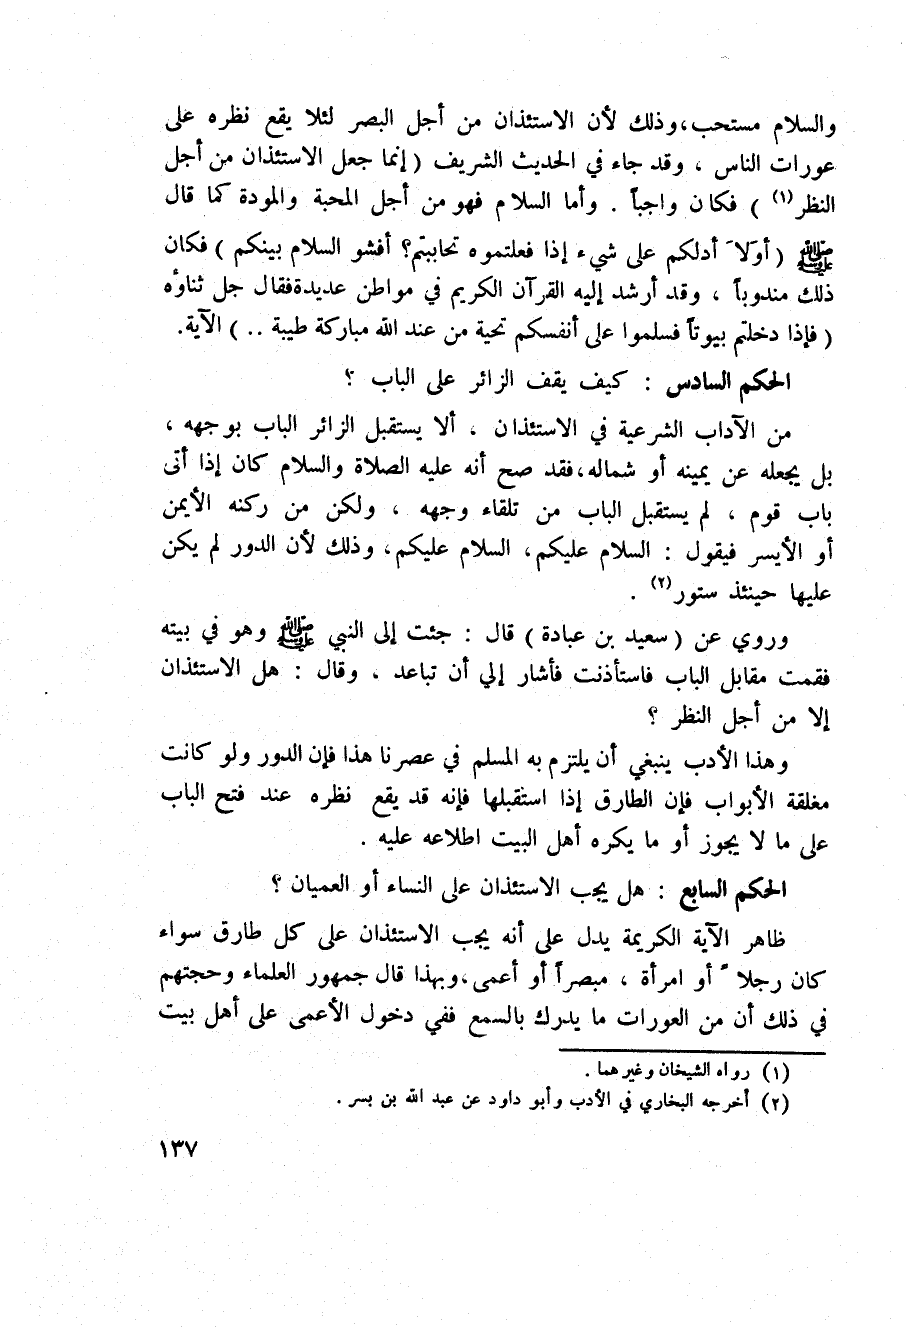 والسلام مستحب،وذلك لأن الاستئذان من أجل البصر لئلا يقع نظره على
عورات الناس ، وقد جاء في الحديث الشريف ( إنما جعل الاستئذان من أجل
النظر(١) ) فكان واجباً . وأما السلام فهو من أجل المحبة والمودة كما قال
ﷺ ( أوَلاَ أدلكم على شيء إذا فعلتموه تحاببتم؟ أفشو السلام بينكم ) فكان
ذلك مندوباً ، وقد أرشد إليه القرآن الكريم في مواطن عديدةفقال جل ثناؤه
( فإذا دخلتم بيوتاً فسلموا على أنفسكم تحية من عند الله مباركة طيبة .. ) الآية.
الحكم السادس : كيف يقف الزائر على الباب ؟
من الآداب الشرعية في الاستئذان ، ألا يستقبل الزائر الباب بوجهه ،
بل يجعله عن يمينه أو شماله،فقد صح أنه عليه الصلاة والسلام كان إذا أتى
باب قوم ، لم يستقبل الباب من تلقاء وجهه ، ولكن من ركنه الأيمن
أو الأيسر فيقول : السلام عليكم، السلام عليكم، وذلك لأن الدور لم يكن
عليها حينئذ ستور(٢) .
وروي عن ( سعيد بن عبادة ) قال : جئت إلى النبي ﷺ وهو في بيته
فقمت مقابل الباب فاستأذنت فأشار إلي أن تباعد ، وقال : هل الاستئذان
إلا من أجل النظر ؟
وهذا الأدب ينبغي أن يلتزم به المسلم في عصرنا هذا فإن الدور ولو كانت
مغلقة الأبواب فإن الطارق إذا استقبلها فإنه قد يقع نظره عند فتح الباب
على ما لا يجوز أو ما يكره أهل البيت اطلاعه عليه .
الحكم السابع : هل يجب الاستئذان على النساء أو العميان ؟
ظاهر الآية الكريمة يدل على أنه يجب الاستئذان على كل طارق سواء
كان رجلاً أو امرأة ، مبصراً أو أعمى،وبهذا قال جمهور العلماء وحجتهم
في ذلك أن من العورات ما يدرك بالسمع ففي دخول الأعمى على أهل بيت
(١) رواه الشيخان وغيرهما .
(٢) أخرجه البخاري في الأدب وأبو داود عن عبد الله بن بسر .
١٣٧